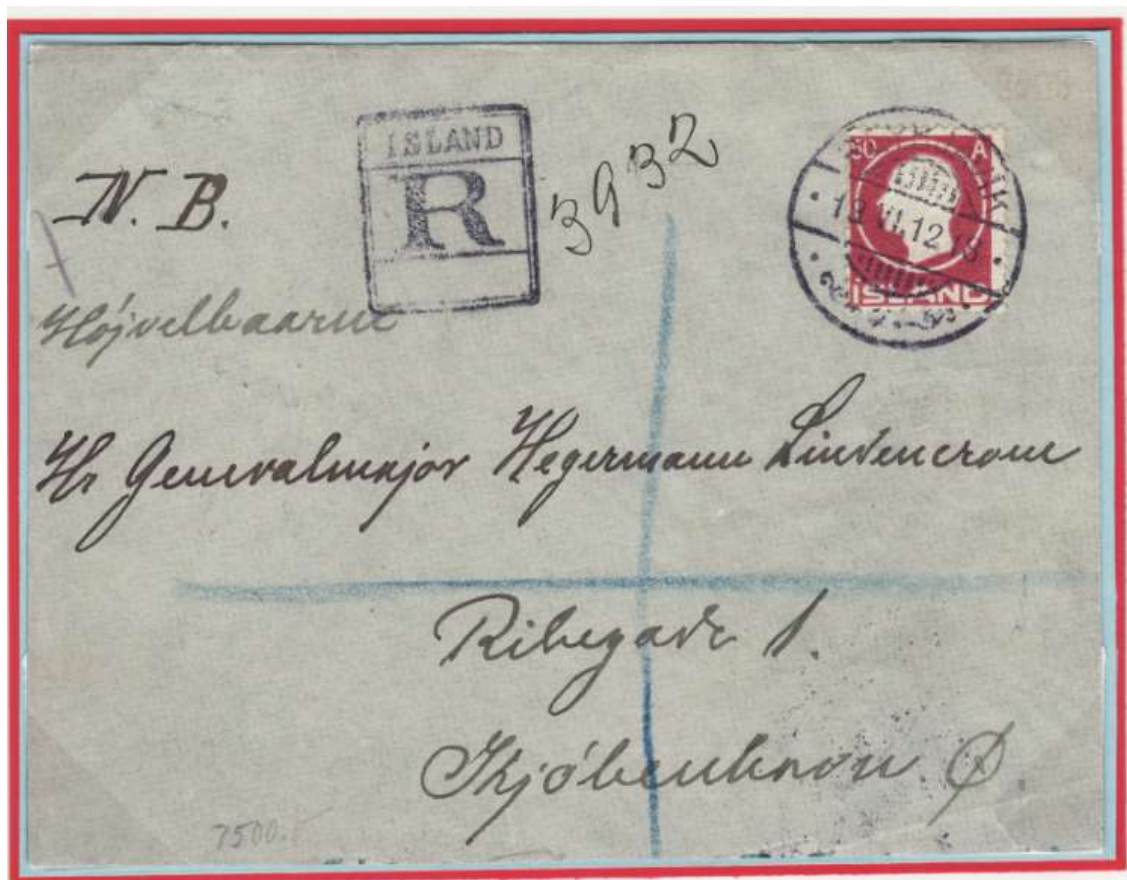 ISLAND
R
3932
50 A
ISLAND
19.VI.12
N. B.
Højvelbaarne
Hr Generalmajor Hegermann Lindencrone
Ribegade 1.
Kjóbenhavn Ø.
7500.